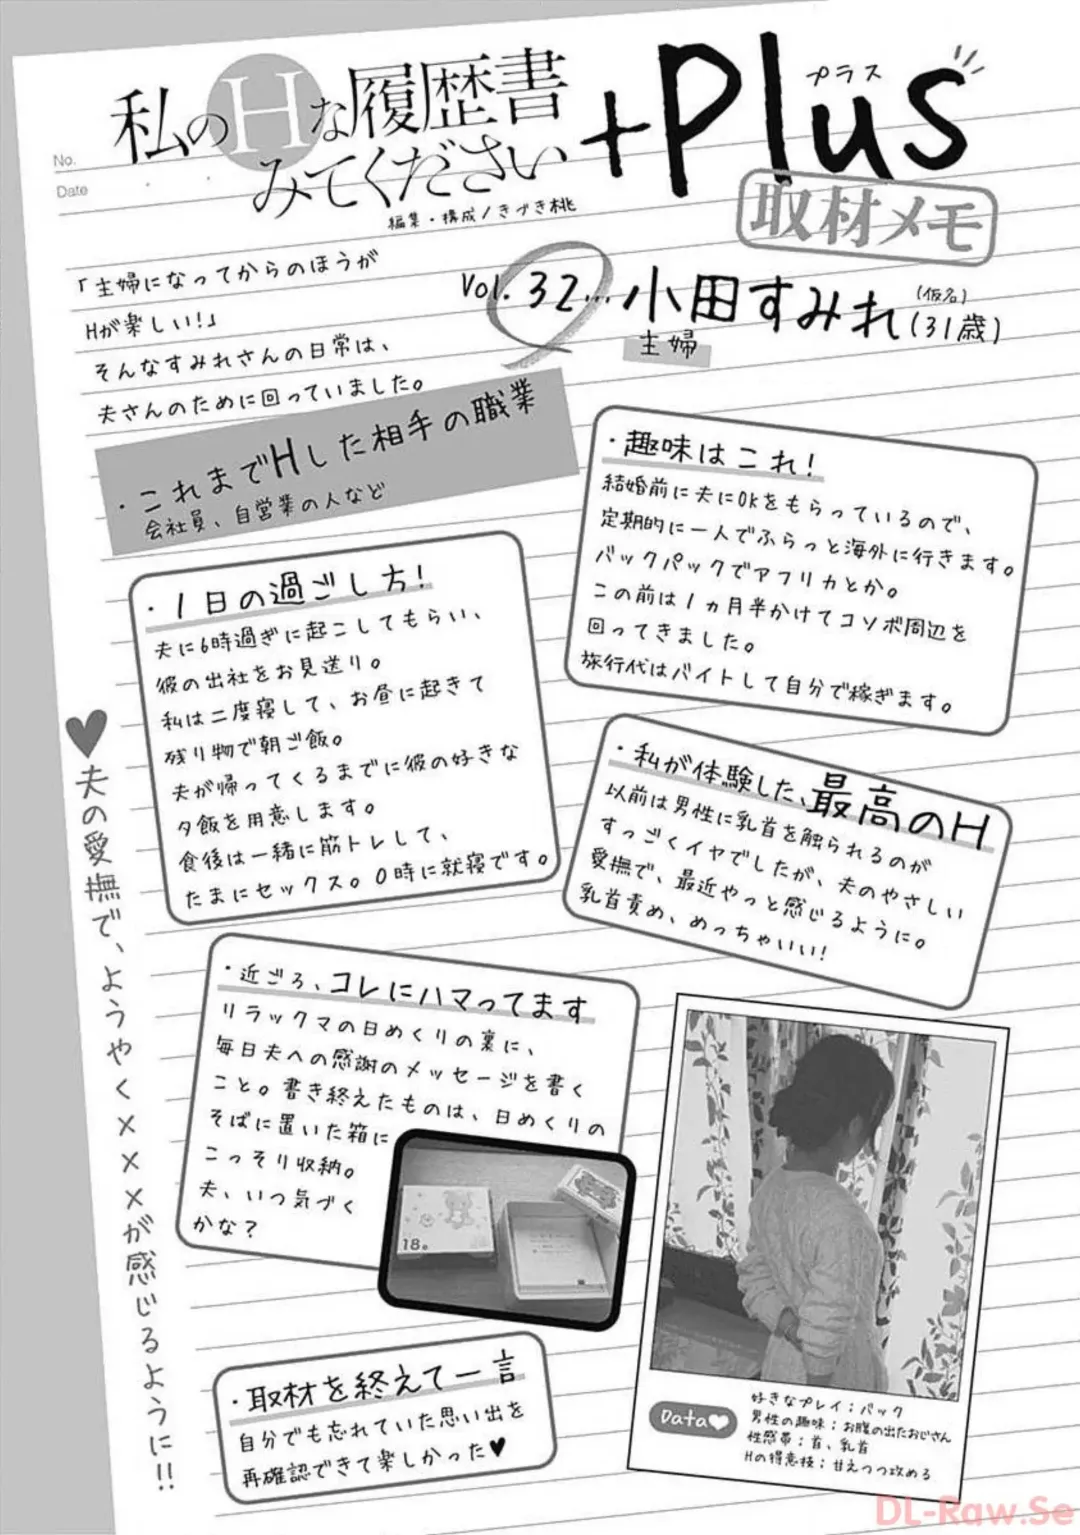 私のHな履歴書
みてください
+Plus
プラス
取材メモ
編集・構成/きづき桃
No.
Date
「主婦になってからのほうが
Hが楽しい!」
そんなすみれさんの日常は、
夫さんのために回っていました。
Vol. 32… 小田すみれ(31歳)
(仮名)
主婦
・これまでHした相手の職業
会社員、自営業の人など
・趣味はこれ!
結婚前に夫にOKをもらっているので、
定期的に一人でふらっと海外に行きます。
バックパックでアフリカとか。
この前は1ヵ月半かけてコソボ周辺を
回ってきました。
旅行代はバイトして自分で稼ぎます。
・1日の過ごし方!
夫に6時過ぎに起こしてもらい、
彼の出社をお見送り。
私は二度寝して、お昼に起きて
残り物で朝ご飯。
夫が帰ってくるまでに彼の好きな
夕飯を用意します。
食後は一緒に筋トレして、
たまにセックス。0時に就寝です。
・私が体験した、最高のH
以前は男性に乳首を触られるのが
すっごくイヤでしたが、夫のやさしい
愛撫で、最近やっと感じるように。
乳首責め、めっちゃいい!
♥夫の愛撫で、ようやく×××が感じるように!!
・近ごろ、コレにハマってます
リラックマの日めくりの裏に、
毎日夫への感謝のメッセージを書く
こと。書き終えたものは、日めくりの
そばに置いた箱に
こっそり収納。
夫、いつ気づく
かな?
18
・取材を終えて一言
自分でも忘れていた思い出を
再確認できて楽しかった♥
Data♥
好きなプレイ:バック
男性の趣味:お腹の出たおじさん
性感帯:首、乳首
Hの得意技:甘えつつ攻める
DL-Raw.Se